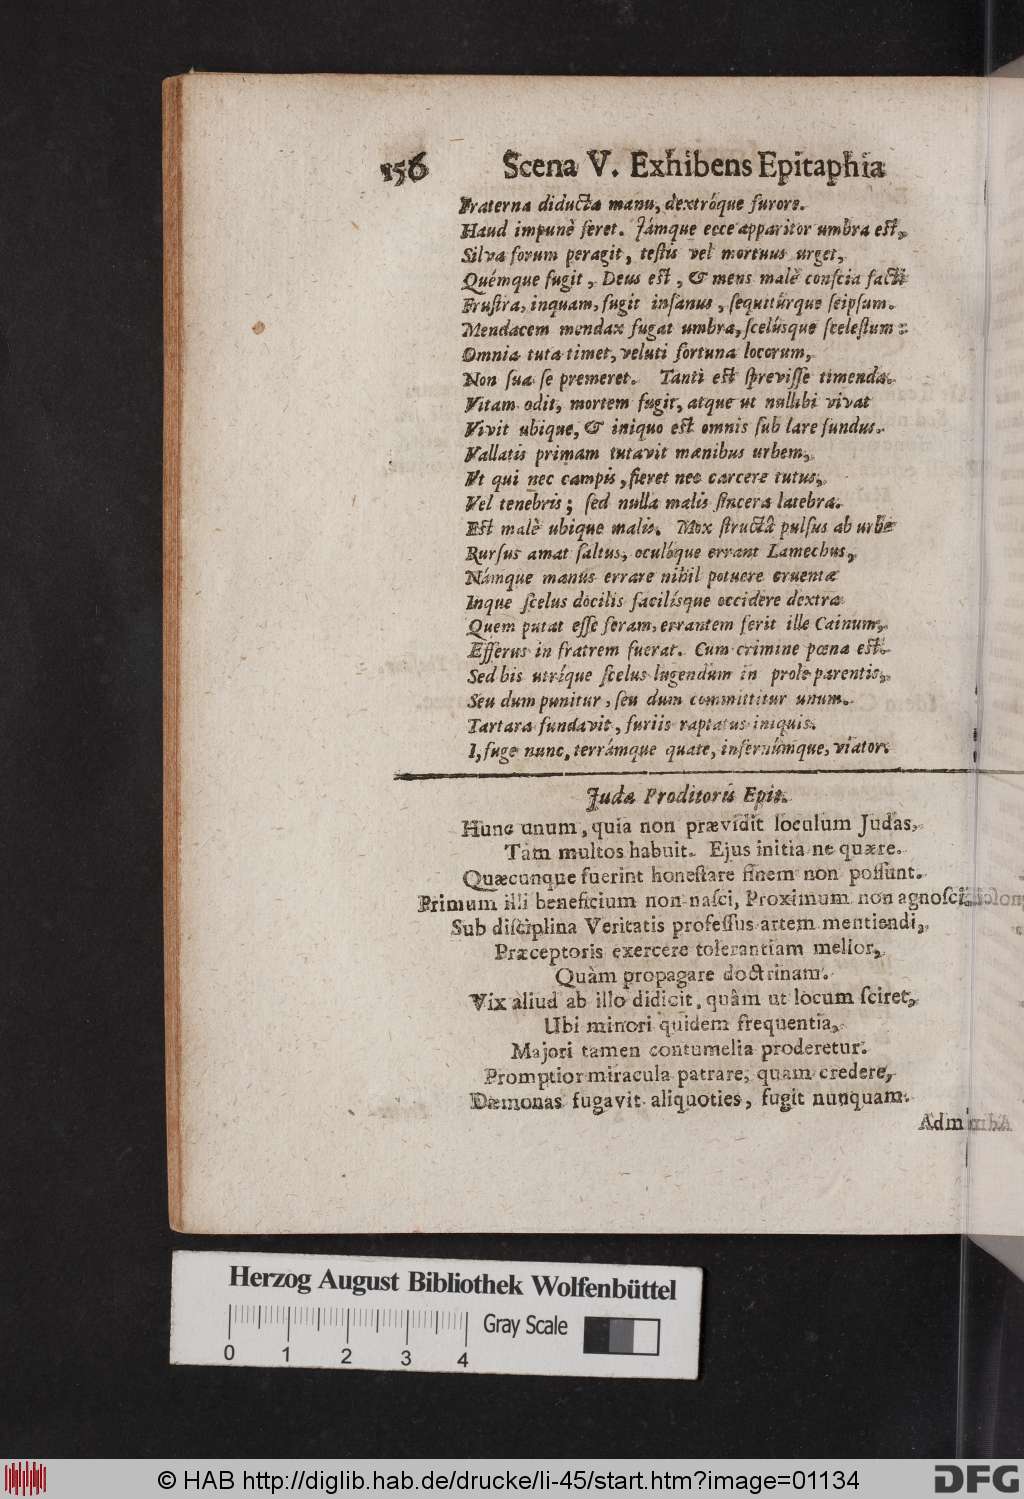 156 Scena V. Exhibens Epitaphia
Fraterna diducta manu, dextróque furore.
Haud impunè feret. Jámque ecce apparitor umbra est,
Silva forum peragit, testis vel mortuus urget,
Quémque fugit, Deus est, & mens malè conscia facti
Frustra, inquam, fugit insanus, sequitúrque seipsum.
Mendacem mendax fugat umbra, scelúsque scelestum:
Omnia tuta timet, veluti fortuna locorum,
Non sua se premeret. Tanti est sprevisse timenda.
Vitam odit, mortem fugit, atque ut nullibi vivat
Vivit ubique, & iniquo est omnis sub lare fundus.
Vallatis primam tutavit mænibus urbem,
Ut qui nec campis, fieret nec carcere tutus,
Vel tenebris; sed nulla malis sincera latebra.
Est malè ubique malis. Mox structâ pulsus ab urbe
Rursus amat saltus, oculóque errant Lamechus,
Námque manus errare nihil potuere cruentæ
Inque scelus docilis facilísque occidere dextra
Quem putat esse feram, errantem ferit ille Cainum,
Efferus in fratrem fuerat. Cum crimine pœna est.
Sed bis utrique scelus lugendum in prole parentis,
Seu dum punitur, seu dum committitur unum.
Tartara fundavit, furiis raptatus iniquis.
I, fuge nunc, terrámque quate, infernúmque, viator.
Judæ Proditoris Epit.
Hunc unum, quia non prævidit loculum Judas,
Tam multos habuit. Ejus initia ne quære.
Quæcunque fuerint honestare finem non possunt.
Primum illi beneficium non nasci, Proximum non agnosci.
Sub disciplina Veritatis professus artem mentiendi,
Præceptoris exercere tolerantiam melior,
Quàm propagare doctrinam.
Vix aliud ab illo didicit, quâm ut locum sciret,
Ubi minori quidem frequentia,
Majori tamen contumelia proderetur.
Promptior miracula patrare, quam credere,
Dæmonas fugavit aliquoties, fugit nunquam.
Herzog August Bibliothek Wolfenbüttel
Gray Scale
0 1 2 3 4
© HAB http://diglib.hab.de/drucke/li-45/start.htm?image=01134
DFG